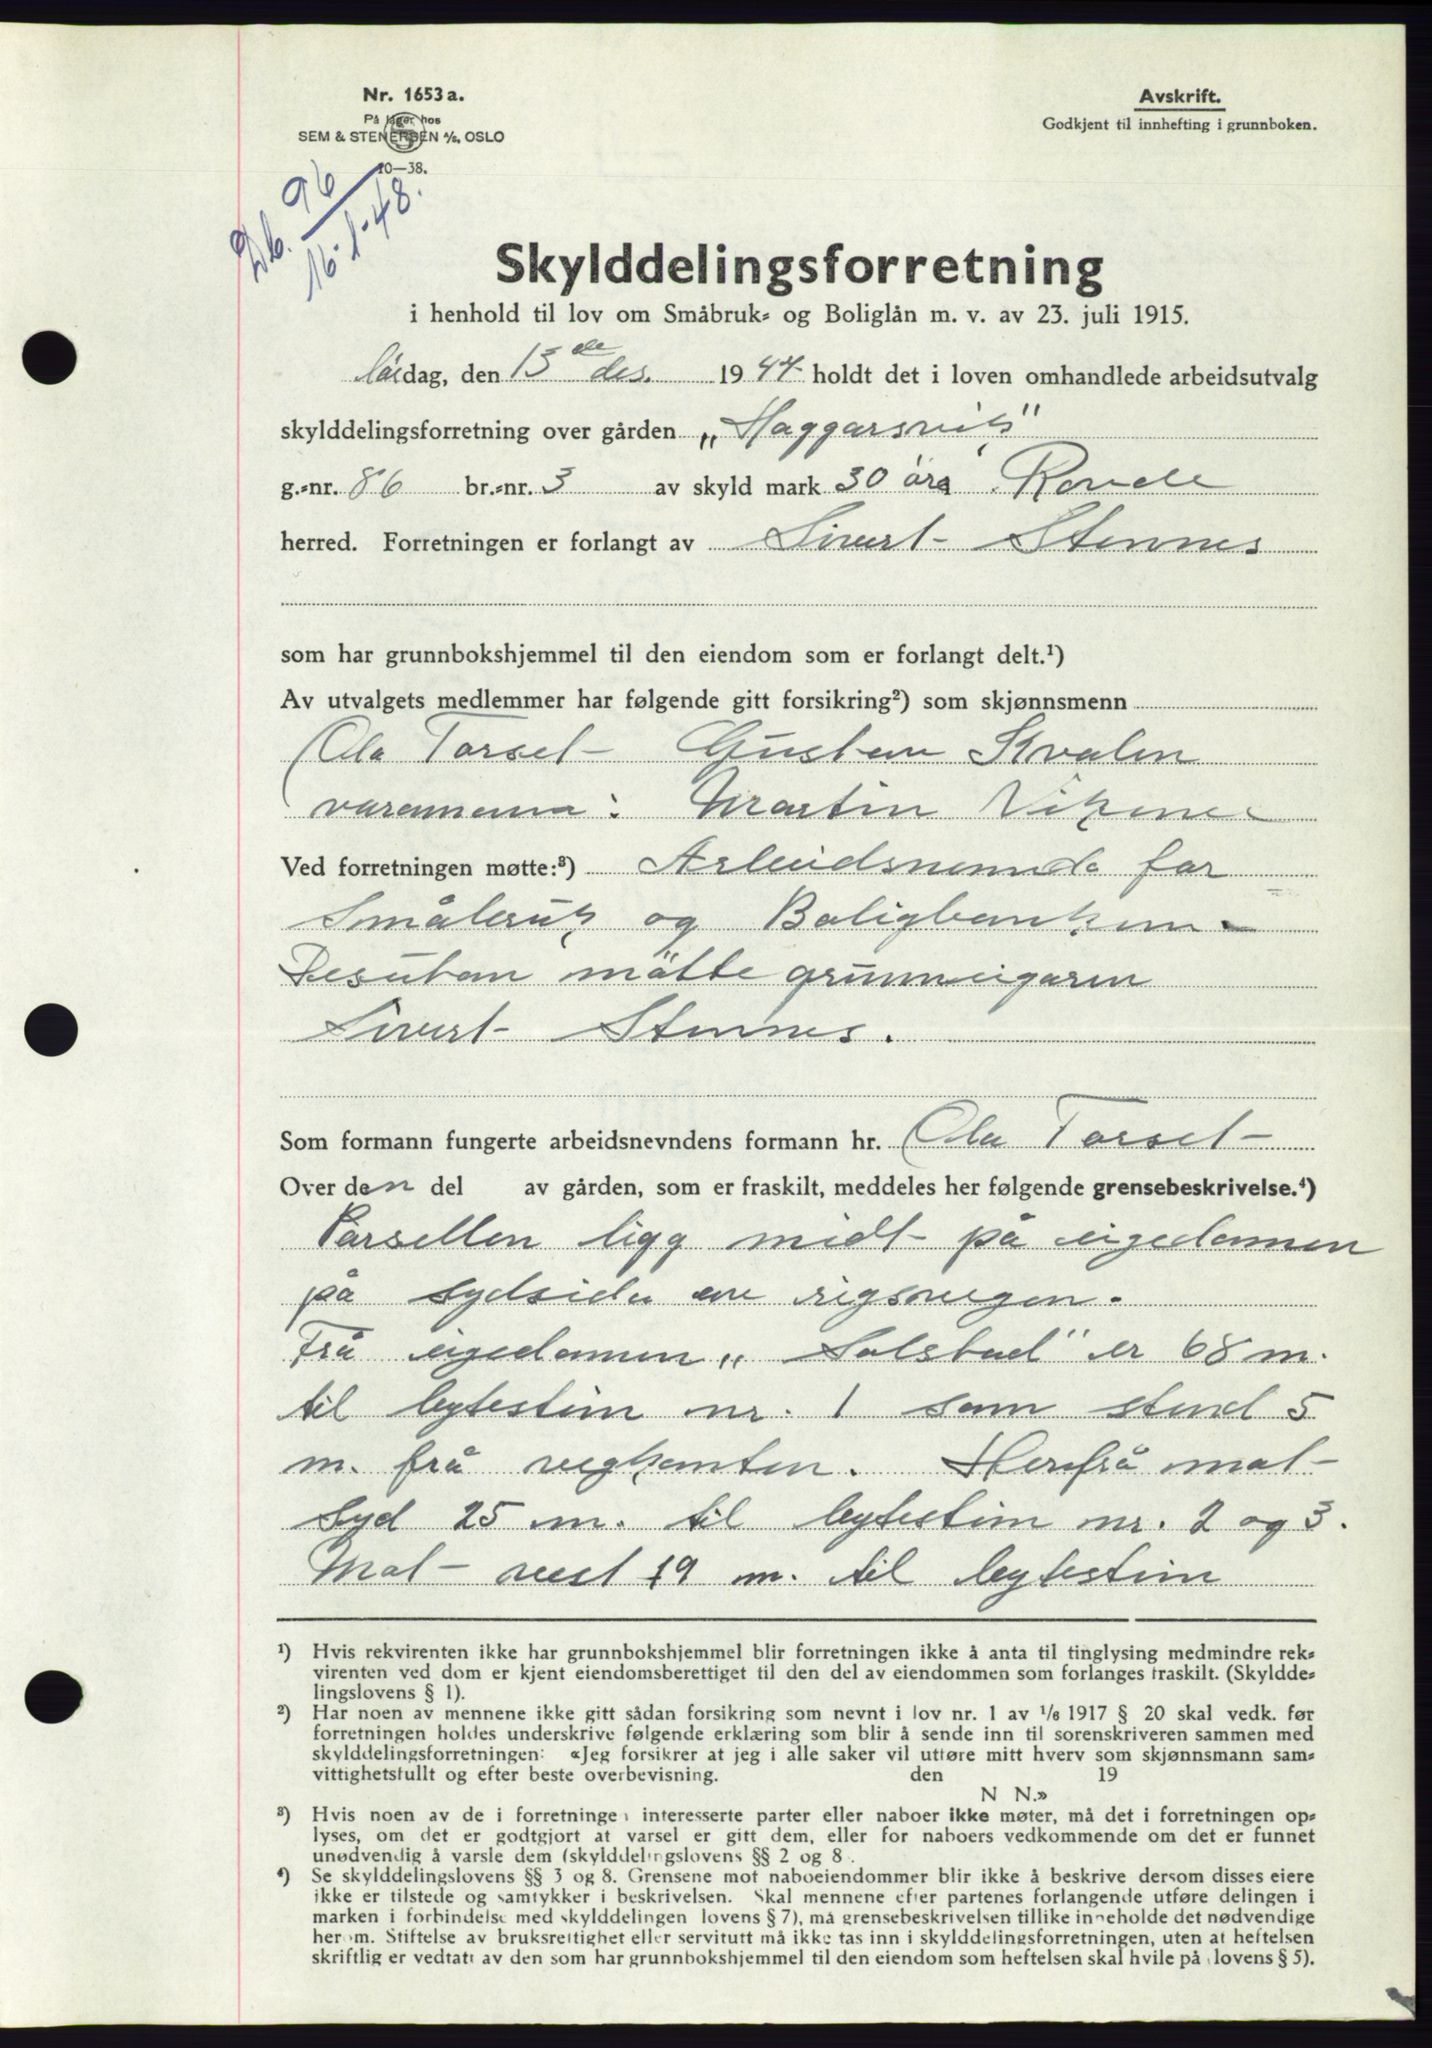 Nr. 1653 a.
På lager hos
SEM & STENERSEN A/S, OSLO
10—38.
Avskrift.
Godkjent til innhefting i grunnboken.
Db. 96
16-1-48.
Skylddelingsforretning
i henhold til lov om Småbruk- og Boliglån m. v. av 23. juli 1915.
lördag, den 13de des. 1947 holdt det i loven omhandlede arbeidsutvalg
skylddelingsforretning over gården „Haggarsvik"
g.-nr. 86 br.-nr. 3 av skyld mark 30 öre. Rovde
herred. Forretningen er forlangt av Sivert Stennes
som har grunnbokshjemmel til den eiendom som er forlangt delt.¹)
Av utvalgets medlemmer har følgende gitt forsikring²) som skjønnsmenn
Ola Torset Gustav Kvalen
varamann: Martin Vikene
Ved forretningen møtte:³) Arbeidsnemnda for
Småbruk og Boligbanken.
Desutan mötte grunneigaren
Sivert Stennes.
Som formann fungerte arbeidsnevndens formann hr. Ola Torset
Over den del av gården, som er fraskilt, meddeles her følgende grensebeskrivelse.⁴)
Parsellen ligg midt på eigedomen
på sydsida av rigsvegen.
Frå eigedomen „Solstad" er 68 m.
til bytestein nr. 1 som stend 5
m. frå vegkanten. Herifrå mot
syd 25 m. til bytestein nr. 2 og 3.
Mot vest 19 m. til bytestein
¹) Hvis rekvirenten ikke har grunnbokshjemmel blir forretningen ikke å anta til tinglysing medmindre rek-
virenten ved dom er kjent eiendomsberettiget til den del av eiendommen som forlanges fraskilt. (Skyldde-
lingslovens § 1).
²) Har noen av mennene ikke gitt sådan forsikring som nevnt i lov nr. 1 av 1/6 1917 § 20 skal vedk. før
forretningen holdes underskrive følgende erklæring som blir å sende inn til sorenskriveren sammen med
skylddelingsforretningen: «Jeg forsikrer at jeg i alle saker vil utføre mitt hverv som skjønnsmann sam-
vittighetsfullt og efter beste overbevisning. den 19
N N.»
³) Hvis noen av de i forretningen interesserte parter eller naboer ikke møter, må det i forretningen op-
lyses, om det er godtgjort at varsel er gitt dem, eller for naboers vedkommende om det er funnet
unødvendig å varsle dem (skylddelingslovens §§ 2 og 8).
⁴) Se skylddelingslovens §§ 3 og 8. Grensene mot naboeiendommer blir ikke å beskrive dersom disses eiere
ikke er tilstede og samtykker i beskrivelsen. Skal mennene efter partenes forlangende utføre delingen i
marken i forbindelse med skylddelingen lovens § 7), må grensebeskrivelsen tillike inneholde det nødvendige
herom. Stiftelse av bruksrettighet eller servitutt må ikke tas inn i skylddelingsforretningen, uten at heftelsen
skriftlig er vedtatt av den som har grunnbokshjemmel til den eiendom som heftelsen skal hvile på lovens § 5).